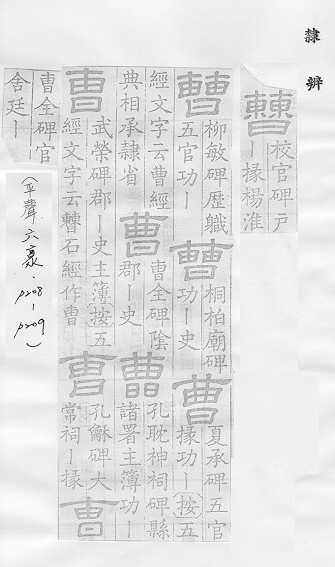 隸辨
𣍘 校官碑戶
丨掾楊淮
𣍘 柳敏碑歷職
五官功丨
曹 桐柏廟碑
功丨史
曹 夏承碑五官
掾功丨按五
經文字云曹經
典相承隸省
曹 曹全碑陰
郡丨史
曹 孔耽神祠碑縣
諸署主簿功丨
曹 武榮碑郡丨史主簿按五
經文字云𣍘石經作曹
曹 孔龢碑大
常祠丨掾
曹
曹全碑官
舍廷丨
(平聲六豪.p208-p209)